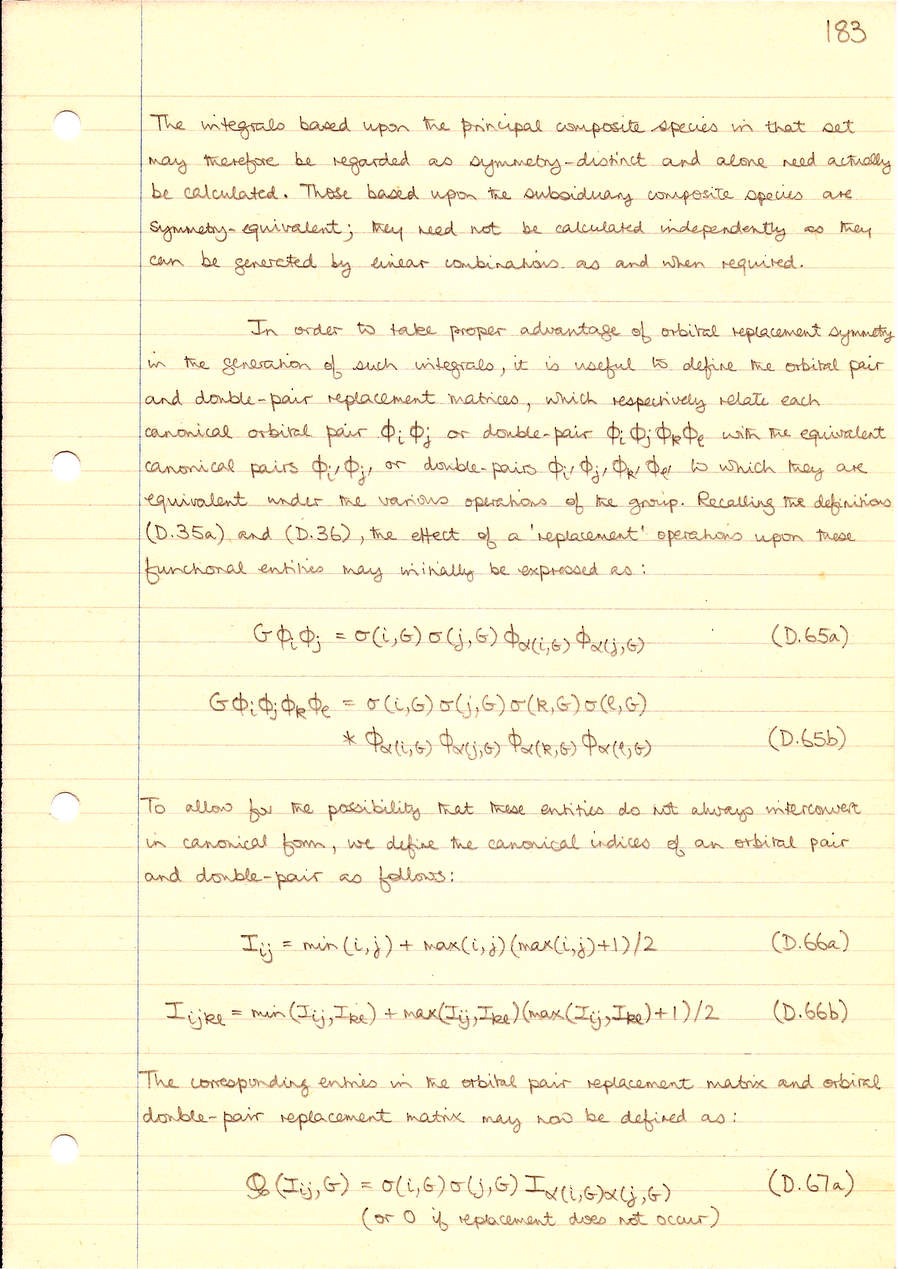 183
The integrals based upon the principal composite species in that set
may therefore be regarded as symmetry-distinct and alone need actually
be calculated. Those based upon the subsiduary composite species are
symmetry-equivalent; they need not be calculated independently as they
can be generated by linear combinations as and when required.
In order to take proper advantage of orbital replacement symmetry
in the generation of such integrals, it is useful to define the orbital pair
and double-pair replacement matrices, which respectively relate each
canonical orbital pair ϕiϕj or double-pair ϕiϕjϕkϕl with the equivalent
canonical pairs ϕi'ϕj' or double-pairs ϕi'ϕj'ϕk'ϕl' to which they are
equivalent under the various operations of the group. Recalling the definitions
(D.35a) and (D.36), the effect of a 'replacement' operations upon these
functional entities may initially be expressed as:
Gϕiϕj = σ(i,G)σ(j,G)ϕα(i,G)ϕα(j,G) (D.65a)
Gϕiϕjϕkϕl = σ(i,G)σ(j,G)σ(k,G)σ(l,G)
* ϕα(i,G)ϕα(j,G)ϕα(k,G)ϕα(l,G) (D.65b)
To allow for the possibility that these entities do not always interconvert
in canonical form, we define the canonical indices of an orbital pair
and double-pair as follows:
Iij = min(i,j) + max(i,j)(max(i,j)+1)/2 (D.66a)
Iijkl = min(Iij,Ikl) + max(Iij,Ikl)(max(Iij,Ikl)+1)/2 (D.66b)
The corresponding entries in the orbital pair replacement matrix and orbital
double-pair replacement matrix may now be defined as:
(Iij,G) = σ(i,G)σ(j,G)Iα(i,G)α(j,G) (D.67a)
(or 0 if replacement does not occur)